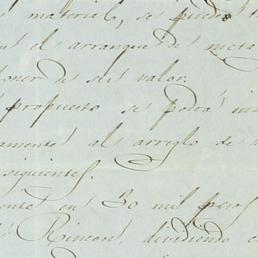 material, se pueden
el arranque de meta
poner de seis valor.
propuesto se podrá in
amente al arreglo de
siguientes.
en 30 mil pesos
Rincon, dividiendo